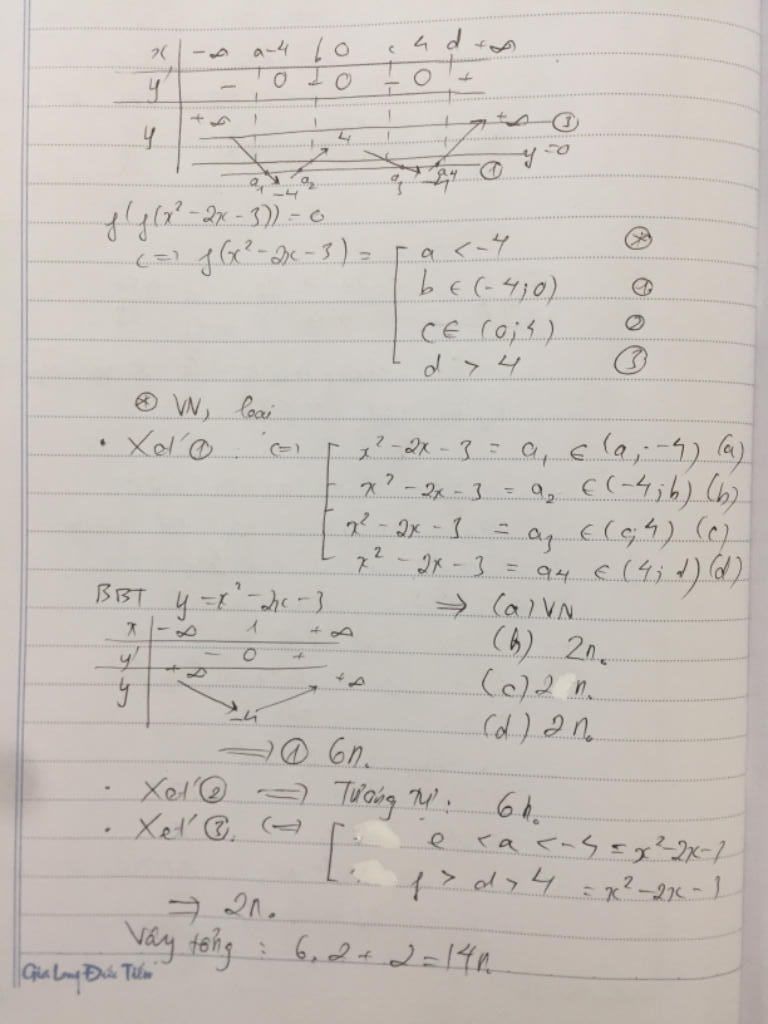 x | -∞ a -4 b 0 c 4 d +∞
y' | - 0 + 0 - 0 +
y | +∞ 4 +∞ ③
y=0
a₁ -4 a₂ a₃ a₄ ①
f(f(x²-2x-3))=0
<=> f(x²-2x-3) = [ a < -4 ⊛
b ∈ (-4;0) ①
c ∈ (0;4) ②
d > 4 ③
⊛ VN, loại
• Xét ① <=> [ x²-2x-3 = a₁ ∈ (a;-4) (a)
x²-2x-3 = a₂ ∈ (-4;b) (b)
x²-2x-3 = a₃ ∈ (c;4) (c)
x²-2x-3 = a₄ ∈ (4;d) (d)
BBT y = x²-2x-3 => (a) VN
x | -∞ 1 +∞ (b) 2n.
y' | - 0 +
y | +∞ -4 +∞ (c) 2 n.
(d) 2n.
=> ① 6n.
• Xét ② => Tương tự: 6n.
• Xét ③. <=> [ e < a < -4 = x²-2x-3
f > d > 4 = x²-2x-3
=> 2n.
Vậy tổng : 6.2+2=14n.
Gia Long Đức Tiến